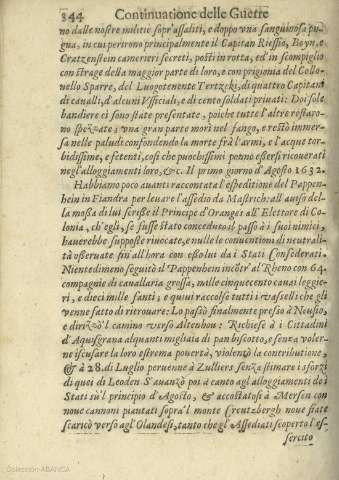 344 Continuatione delle Guerre
no dalle nostre militie sopr'assaliti, e doppo vna sanguinosa pu-
gna, in cui perirono principalmente il Capitan Riessio, Boyn, e
Cratzenstein camerieri secreti, posti in rotta, ed in scompiglio
con strage della maggior parte di loro, e con prigionia del Collo-
nello Sparre, del Luogotenente Tertzeki, di quattro Capitani
di caualli, d'alcuni Vfficiali, e di cento soldati priuati: Doi sole
bandiere ci sono state presentate, poiche tutte l'altre restaro-
no spezzate; vna gran parte morì nel fango, e restò immer-
sa nelle paludi confondendo la morte frà l'armi, e l'acque tor-
bidissime, e fetenti, così che puochissimi peruno essersi ricouerati
negl'alloggiamenti loro, &c. Il primo giorno d'Agosto 1632.
Habbiamo poco auanti raccontata l'espeditione del Pappen-
hein in Fiandra per leuare l'assedio da Mastrich: all'auiso del-
la moßa di lui scriße il Principe d'Oranges all'Elettore di Co-
lonia, ch'egli, se fusse stato conceduto il passo à i suoi nimici,
hauerebbe supposte riuocate, e nulle le conuentioni di neutrali-
tà oßeruate sin all'hora con eßolui da i Stati Confederati.
Nientedimeno seguitò il Pappenhein incõtr'al Rheno con 64.
compagnie di cauallaria grossa, mille cinquecento cauai leggie-
ri, e dieci mille fanti, e quiui raccolse tutti i vasselli che gli
venne fatto di ritrouare: Lo passò finalmente presso à Neusio,
e dirizzò'l camino verso Altenhou: Richiese à i Cittadini
d'Aquisgrana alquanti migliaia di pan biscotto, e senza voler-
ne iscusare la loro estrema pouertà, violentò la contributione,
& à 28. di Luglio peruenne à Zulliers senza stimare i sforzi
di quei di Leoden S'auanzò poi à canto agl'alloggiamenti de i
Stati su'l principio d'Agosto, & accostatosi à Mersen con
noue cannoni piantati sopra'l monte Creutzbergh noue fiate
scaricò verso agl'Olandesi, tanto che gl'Assediati scoperto l'es-
sercito
Colección ABANCA